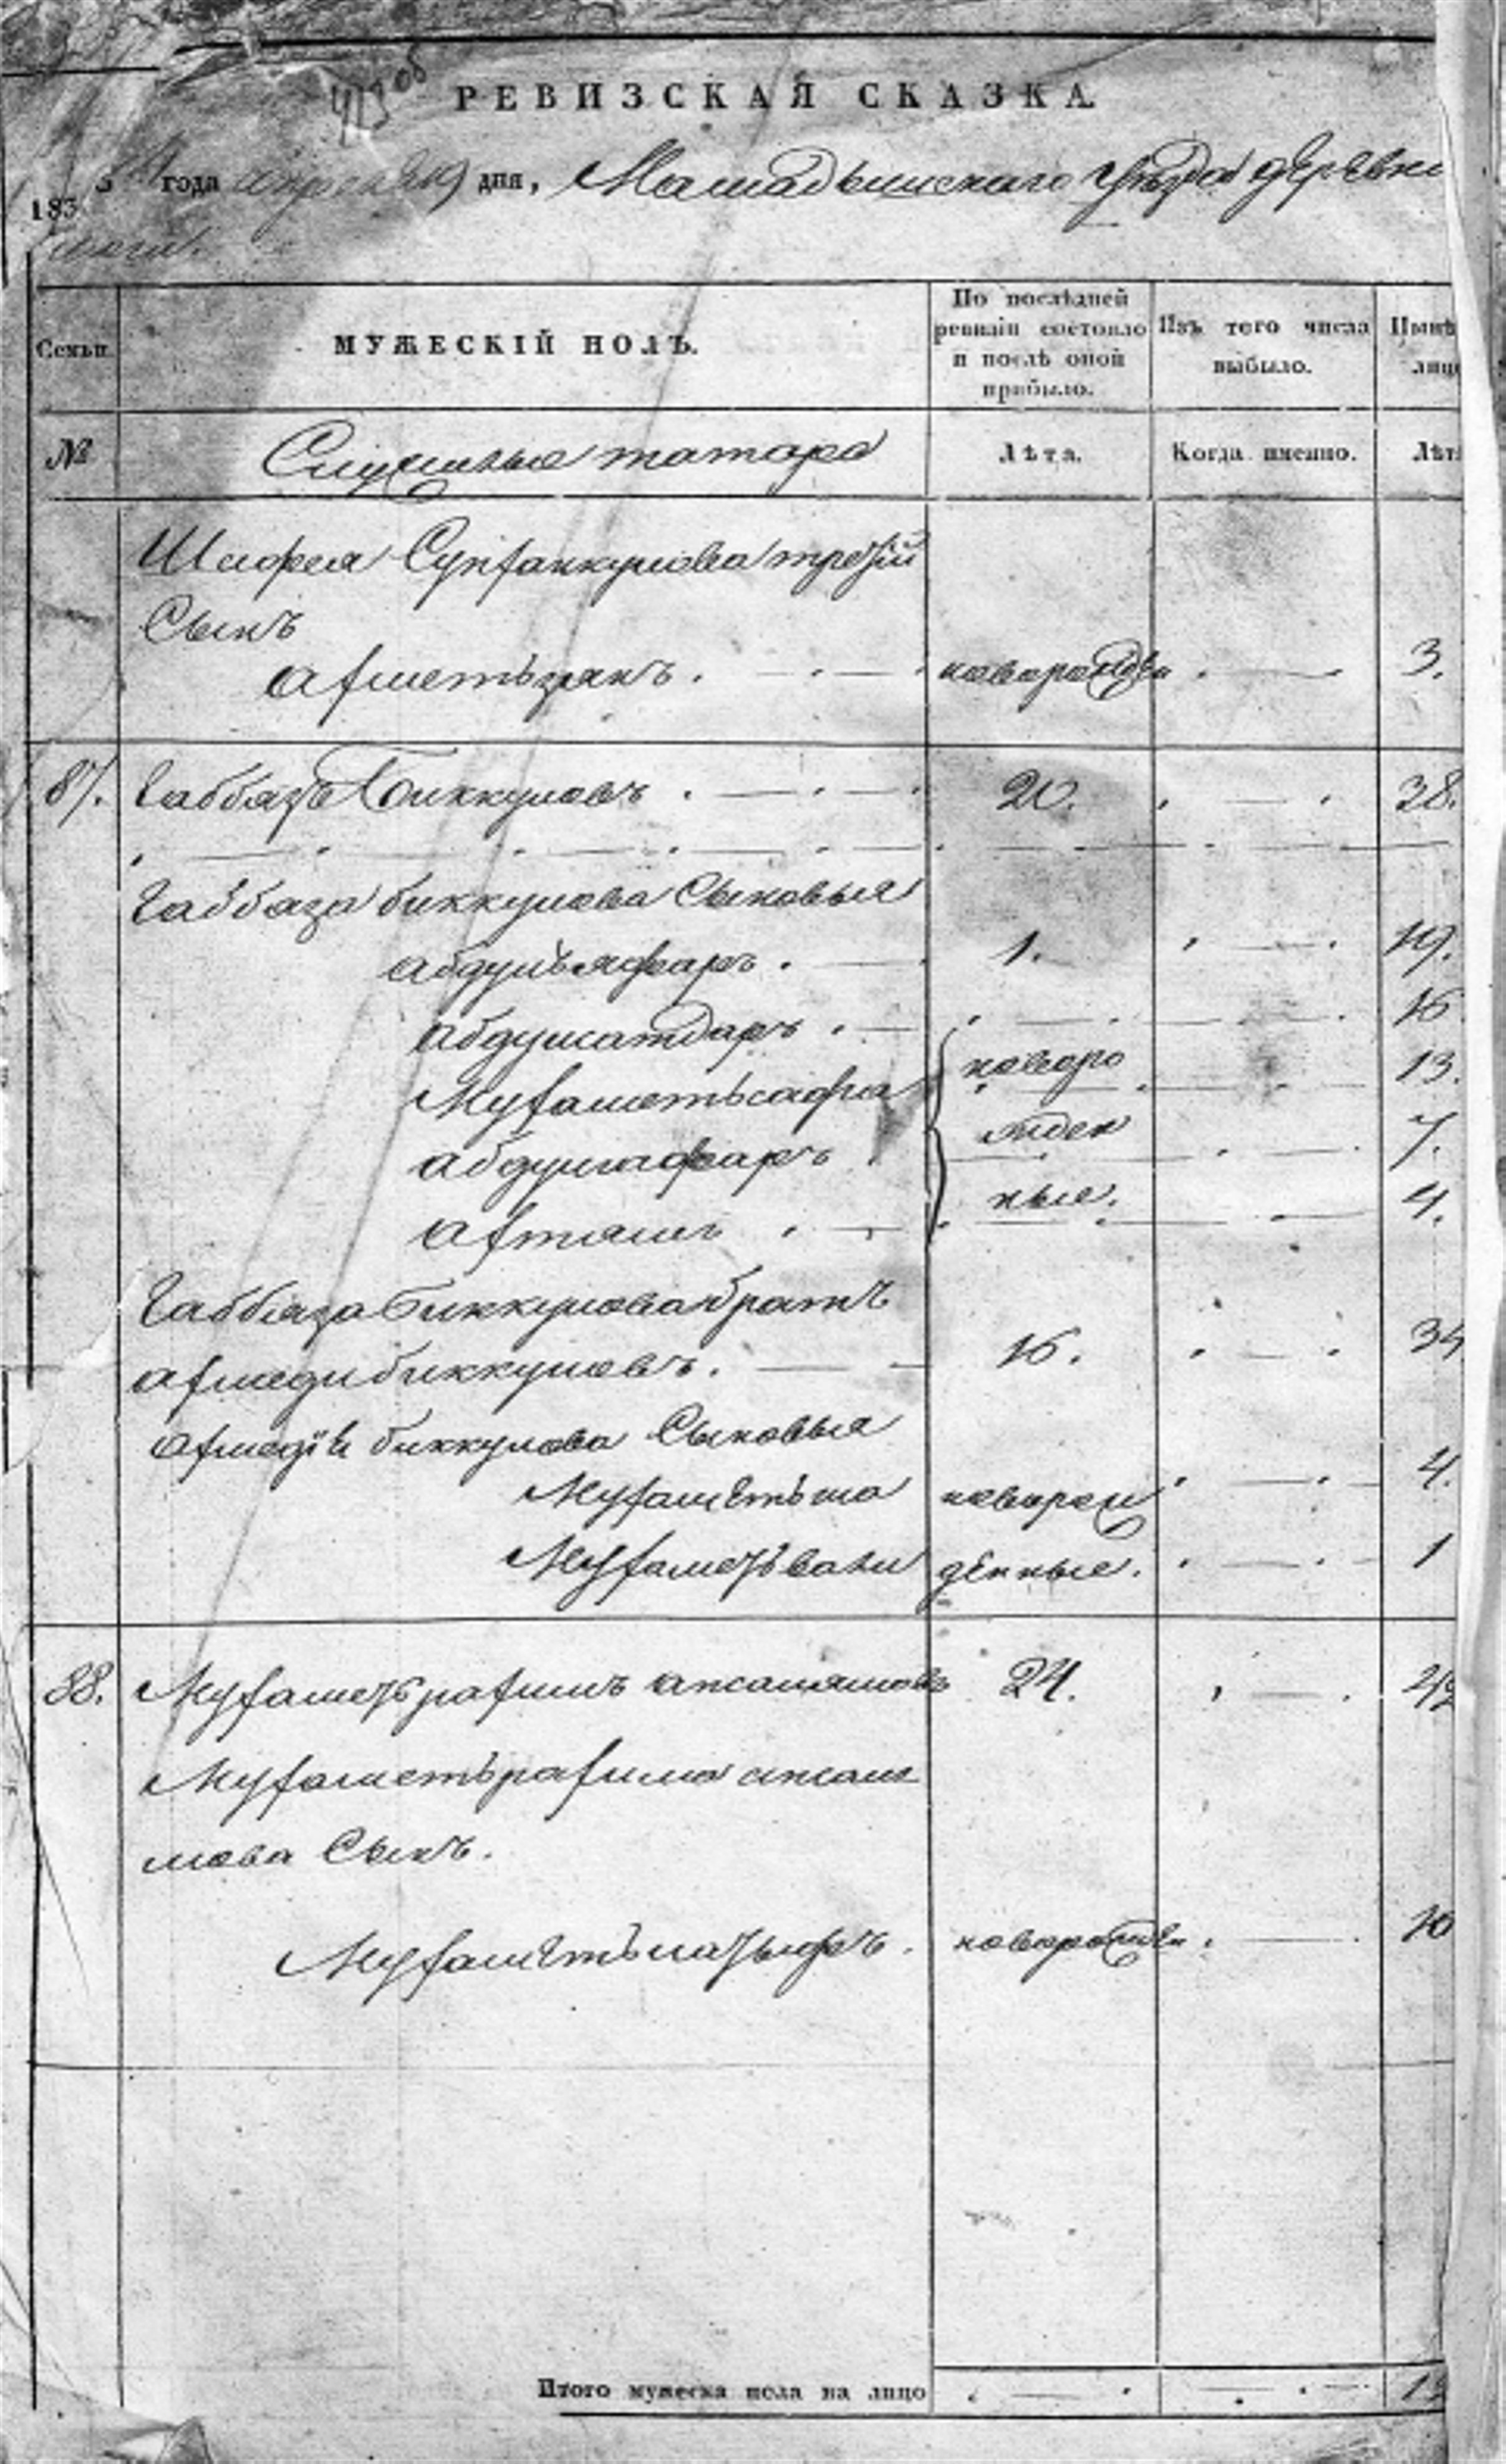 413 об
РЕВИЗСКАЯ СКАЗКА
183 года апреля 19 дня, Мамадышскаго уѣзда деревни
Семьи.
МУЖЕСКІЙ ПОЛЪ.
По послѣдней ревизіи состояло и послѣ оной прибыло.
Изъ того числа выбыло.
Нынѣ лиц
№
Служилые татара
Лѣта.
Когда именно.
Лѣт
Шафея Султанкулова третій
Сынъ
Ахметьзянъ . новорожден 3.
87. Габбязъ Биккуловъ . 20. 38.
Габбаза биккулова Сыновья
абдулъяфаръ . 1. 19.
абдулсатдаръ . 16
Мухаметьсафа новоро 13.
абдулгафаръ . жден 7.
ахтямъ . ные. 4.
Габбяза Биккулова братъ
ахмеди биккуловъ. 16. 34
Ахмедiя биккулова Сыновья
Мухаметьша новорож 4.
Мухаметьвали денные. 1
88. Мухаметьрахимъ 24. 42
Мухаметьрахима
мова Сынъ.
новорожден. 10
Итого мужеска пола на лицо 12